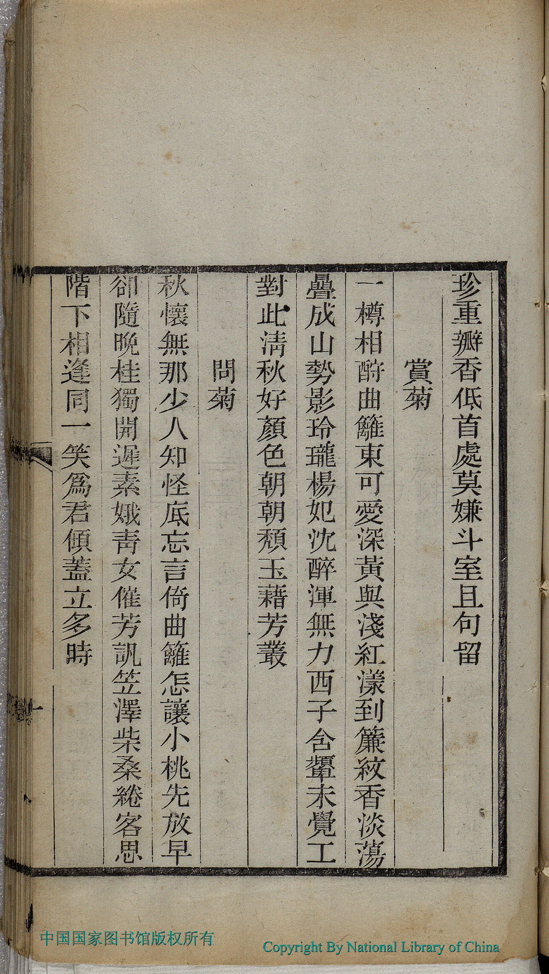 珍重瓣香低首處莫嫌斗室且句留
賞菊
一樽相酹曲籬東可愛深黃與淺紅漾到簾紋香淡蕩
疊成山勢影玲瓏楊妃沈醉渾無力西子含顰未覺工
對此淸秋好顏色朝朝頹玉藉芳叢
問菊
秋懷無那少人知怪底忘言倚曲籬怎讓小桃先放早
卻隨晚桂獨開遲素娥靑女催芳訊笠澤柴桑綣客思
階下相逢同一笑爲君傾蓋立多時
一
中国国家图书馆版权所有
Copyright By National Library of China